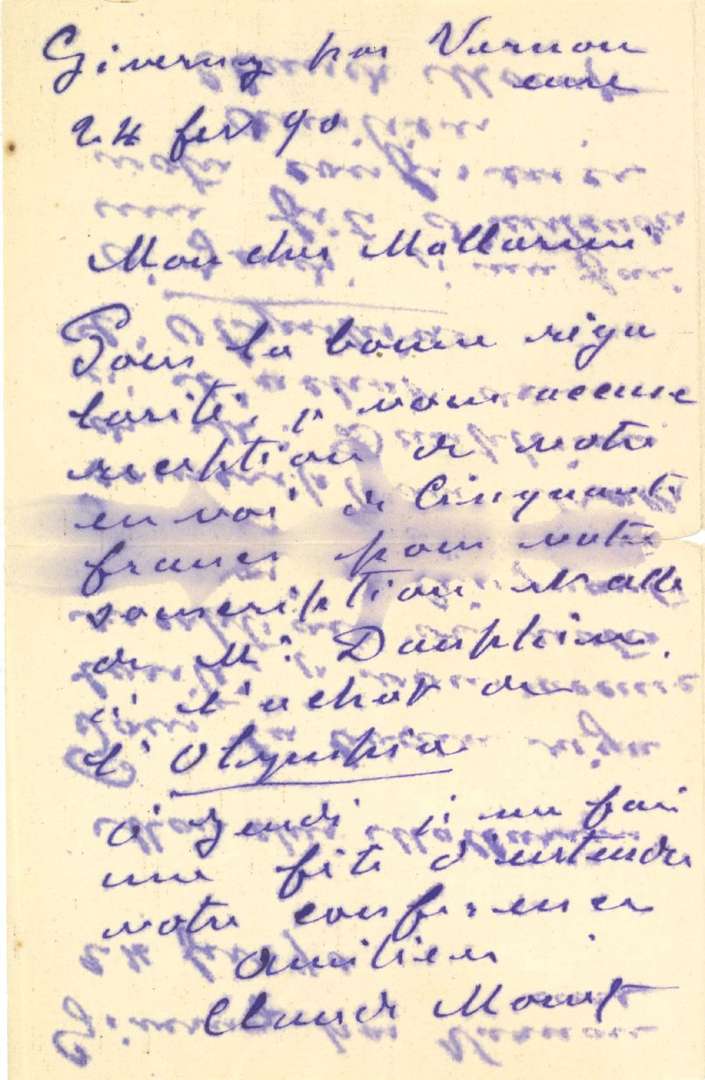 Giverny par Vernon
eure
24 fev 90
Mon cher Mallarmé
Pour la bonne régu
larité, je vous accuse
réception de votre
envoi de Cinquante
francs pour votre
souscription et celle
de Mr. Dauphin
à l'achat de
l'Olympia
à jeudi, je me fais
une fête d'entendre
votre conférence
Amitiés
Claude Monet